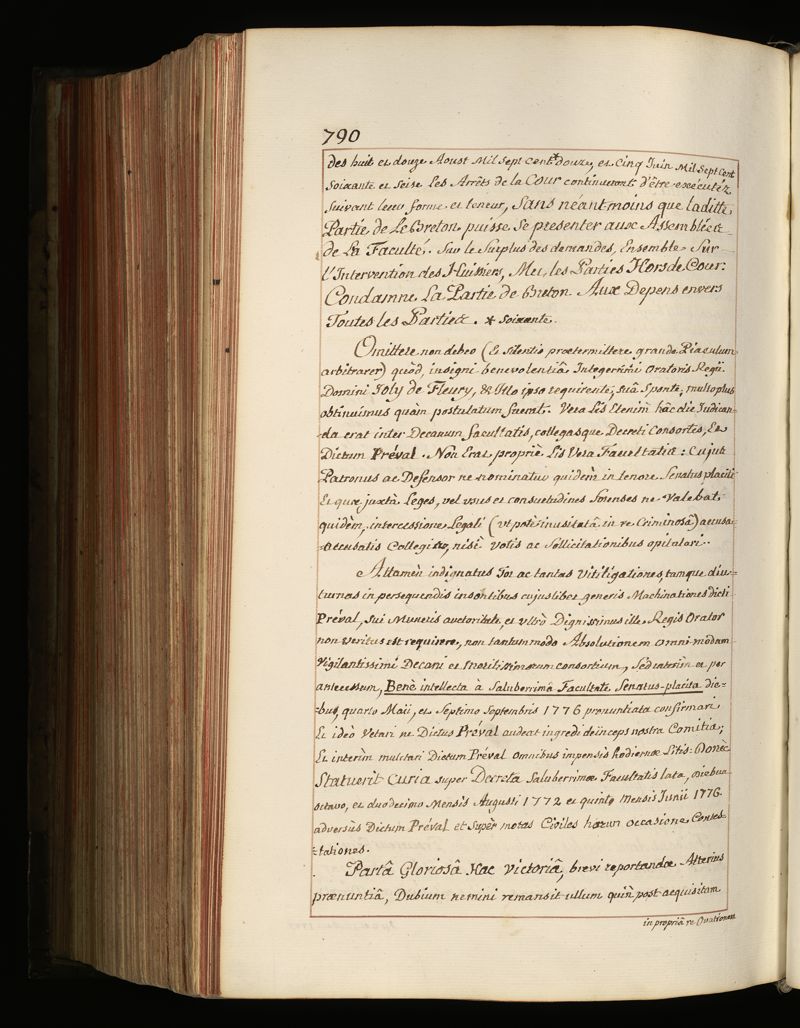 790
des huit et douze Aoust Mil Sept cent* douze, et Cinq Juin Mil Sept Cent
Soixante et Seise Les Arrêts de la Cour continueront d'être executéz
Suivant leur forme et teneur, Sans neantmoins que laditte
Partie de Le Breton puisse Se presenter aux Assemblées
de La Faculté. Sur le Surplus des demandes, Ensemble Sur
l'Intervention des Huissiers, Met les Parties Hors de Cour:
Condamne La Partie de Breton Aux Depens envers
Toutes les Parties. * Soixante.
Omittere non debeo (Et Silentio prætermittere grande Piaculum
arbitrarer) quòd, insigni benevolentiâ Integerrimi Oratoris Regii
Domini Joly de Fleury, & Illo ipso requirente, suâ Sponte, multo plus
obtinuimus quàm postulatum fuerat. Vera Lis Etenim hâc die Judican=
=da erat inter Decanum facultatis, collegasque Decreti Consortes, Et
Dictum Préval. Non Erat propriè Lis Vera Facultatis: Cujus
Patronus ac Defensor ne nominatus quidèm in tenore Senatus placiti
Et quæ juxtà Leges, vel usus et consuetudines Forenses ne Valebat
quidèm, intercessione Legali (ut potè inusitatâ in re Criminosâ) accusa=
=Accusatis Collegis, nisi Votis ac Sollicitationibus opitulari.
Attamèn indignatus Tot ac tantas Vitiligationes, tamque diu=
turnas in persequendis insontibus cujuslibet generis Machinationes dicti
Préval, Sui Muneris auctoritate, et ultrò Dignissimus ille Regis Orator
non veritus est requirere, non tantummodo Absolutionem omnimodam
Vigilantissimi Decani et consortium, Sed interim et per
antecessum, Benè intellecta à Saluberrimâ Facultate Senatus-placita die=
=bus, quarto Maii, et Septimo Septembris 1776 pronuntiata confirmari
Et ideò Vetari ne Dictus Préval audeat ingredi deinceps nostra Comitia;
Et interim mulctari Dictum Préval omnibus impensis hodiernæ Litis: Donèc
Statuerit Curia super Decreta Saluberrimæ Facultatis lata, diebus
octavo, et duodecimo Mensis Augusti 1772 et quinto Mensis Junii 1776
adversùs Dictum Préval et Supèr motas Civiles harum occasione Contes=
=tationes.
Partâ Gloriosâ Hac Victoriâ, brevi reportandæ Alterius
prænuntiâ, Dubium nemini remansit ullum quin post acquisitam
in propriâ re Ovationem